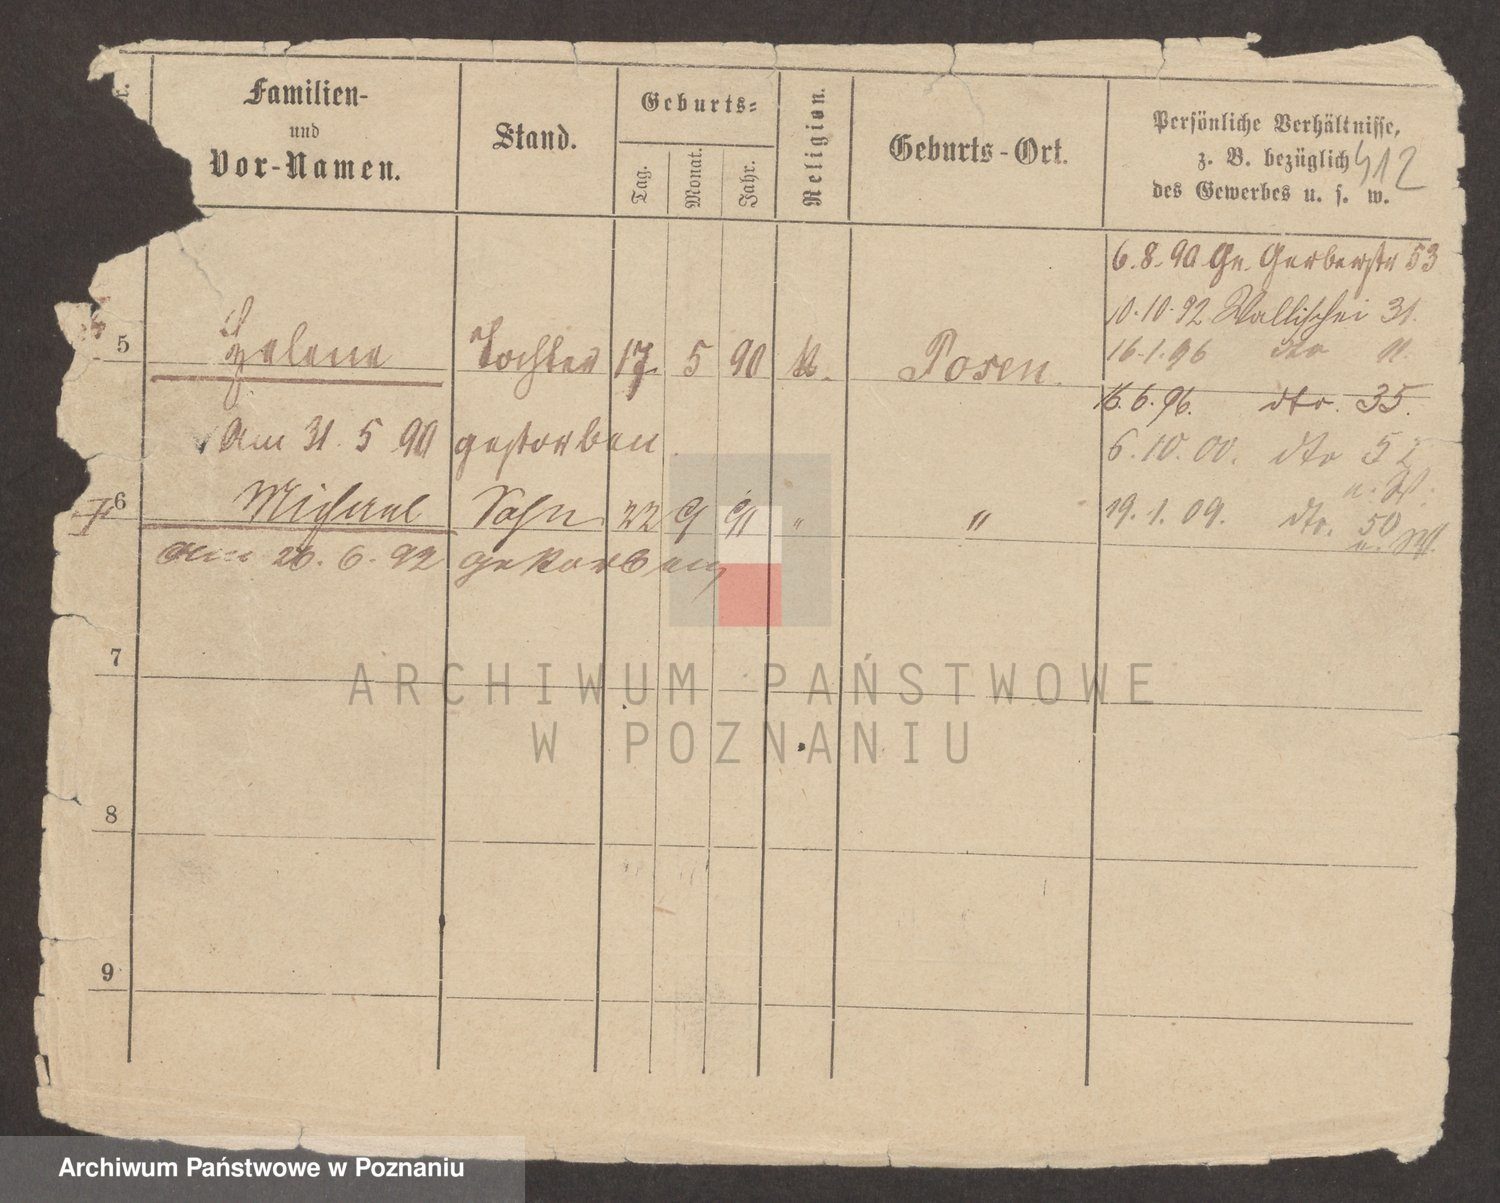 Familien-
und
Vor-Namen.
Stand.
Geburts-
Tag.
Monat.
Jahr.
Religion.
Geburts-Ort.
Persönliche Verhältnisse,
z. B. bezüglich
des Gewerbes u. s. w.
412
6.8.90 Gr. Gerberstr 53
10.10.92 Wallischei 31.
16.1.96 dto
5 Helene Tochter 17. 5 90 k. Posen.
16.6.96. dto. 35.
Am 31. 5 90 gestorben
6.10.00. dto 52
6 Michael Sohn 22 9 91 " "
19.1.09. dto. 50
am 26.6.92 gestorben
7
8
9
ARCHIWUM PAŃSTWOWE
W POZNANIU
Archiwum Państwowe w Poznaniu